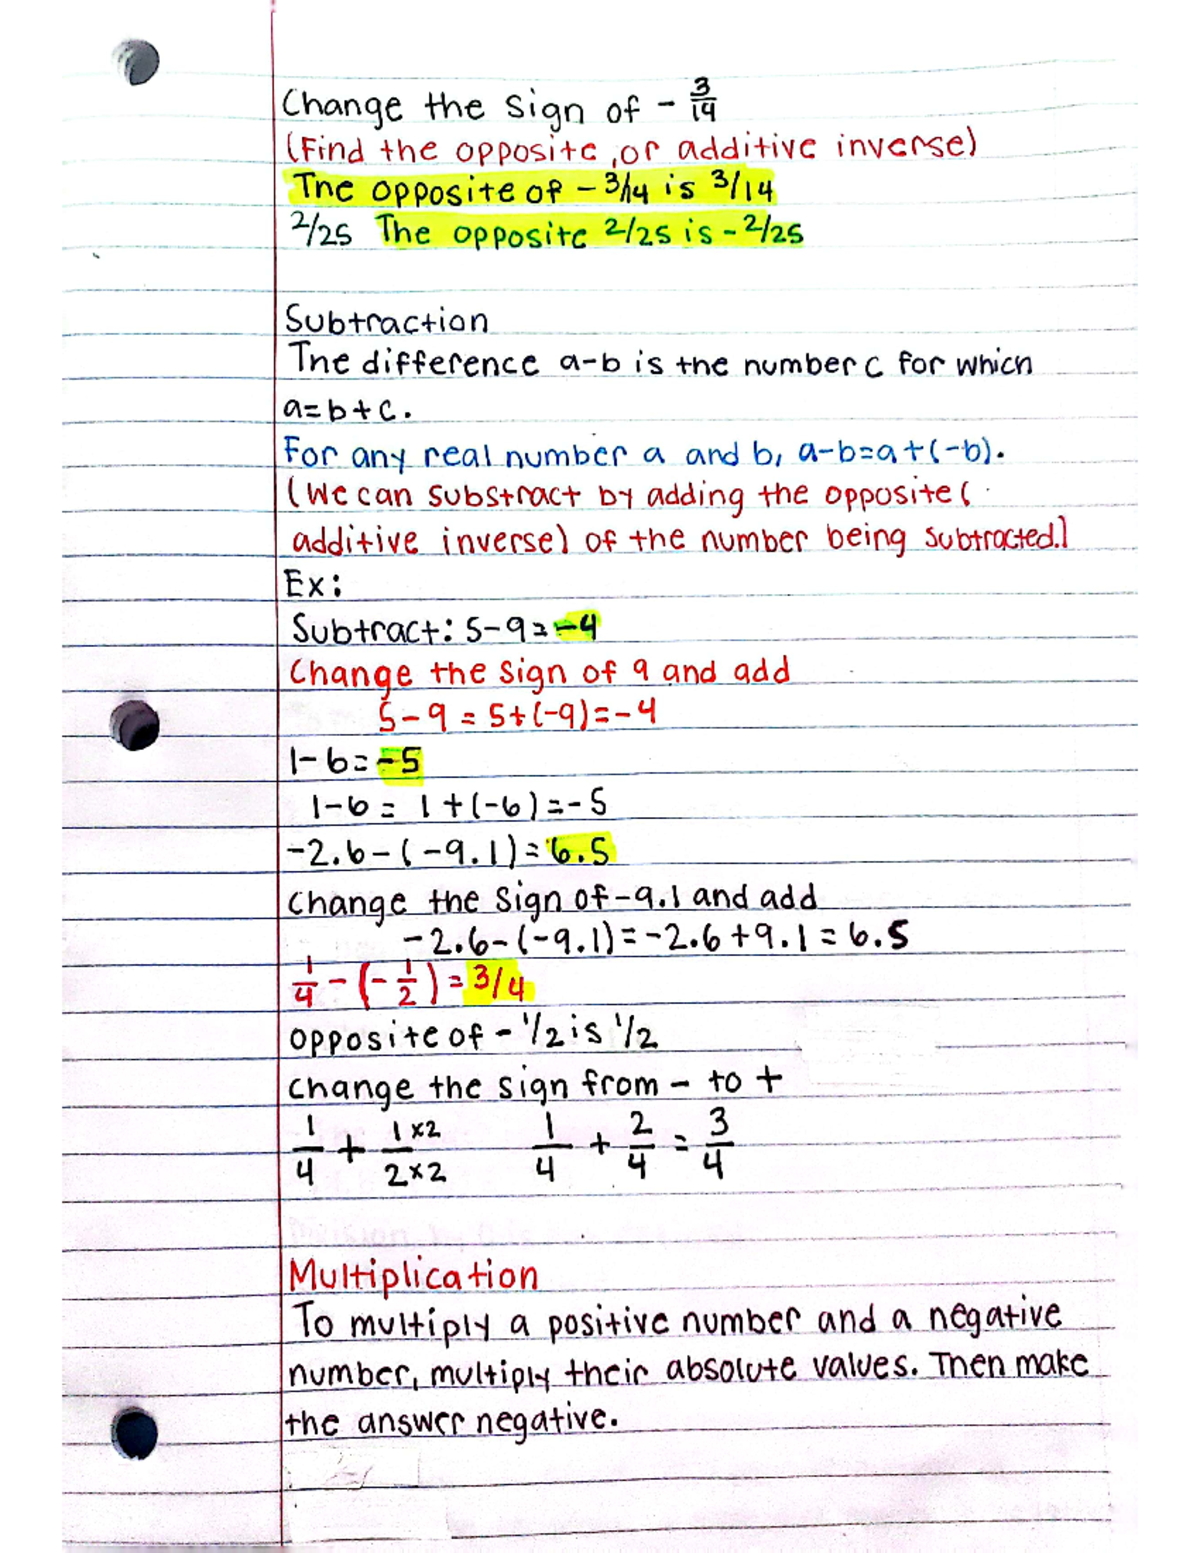 Change the sign of - 3/14
(Find the opposite, or additive inverse)
The opposite of - 3/14 is 3/14
2/25 The opposite 2/25 is - 2/25
Subtraction
The difference a-b is the number c for which
a=b+c.
For any real number a and b, a-b=a+(-b).
(We can substract by adding the opposite (
additive inverse) of the number being subtracted.)
Ex:
Subtract: 5-9=-4
Change the sign of 9 and add
5-9 = 5+(-9)=-4
1-6=-5
1-6 = 1+(-6)=-5
-2.6-(-9.1)=6.5
Change the sign of -9.1 and add
-2.6-(-9.1)=-2.6+9.1=6.5
1/4 - (-1/2) = 3/4
opposite of - 1/2 is 1/2
change the sign from - to +
1/4 + 1x2/2x2 1/4 + 2/4 = 3/4
Multiplication
To multiply a positive number and a negative
number, multiply their absolute values. Then make
the answer negative.